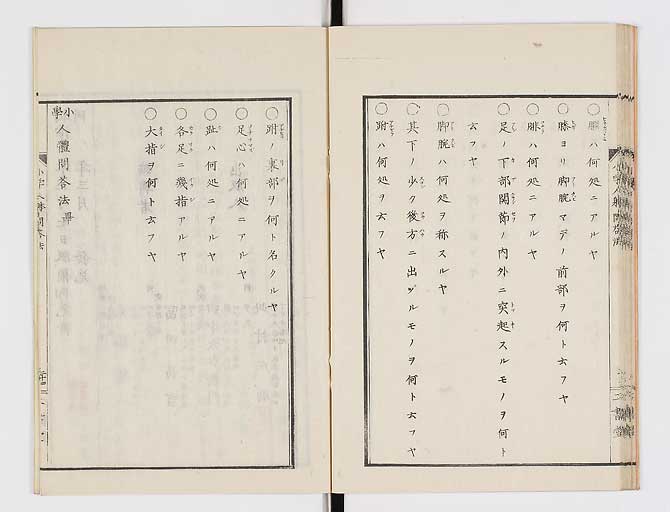 ハ何処ニアルヤ
○膝ヨリ脚腕マデノ前部ヲ何ト云フヤ
○腓ハ何処ニアルヤ
○足ノ下部関節ノ内外ニ突起スルモノヲ何ト
云フヤ
○脚腕ハ何処ヲ称スルヤ
○其下ノ少ク後方ニ出ヅルモノヲ何ト云フヤ
○跗ハ何処ヲ云フヤ
○跗ノ裏部ヲ何ト名クルヤ
○足心ハ何処ニアルヤ
○趾ハ何処ニアルヤ
○各足ニ幾指アルヤ
○大指ヲ何ト云フヤ
小學人體問答法畢